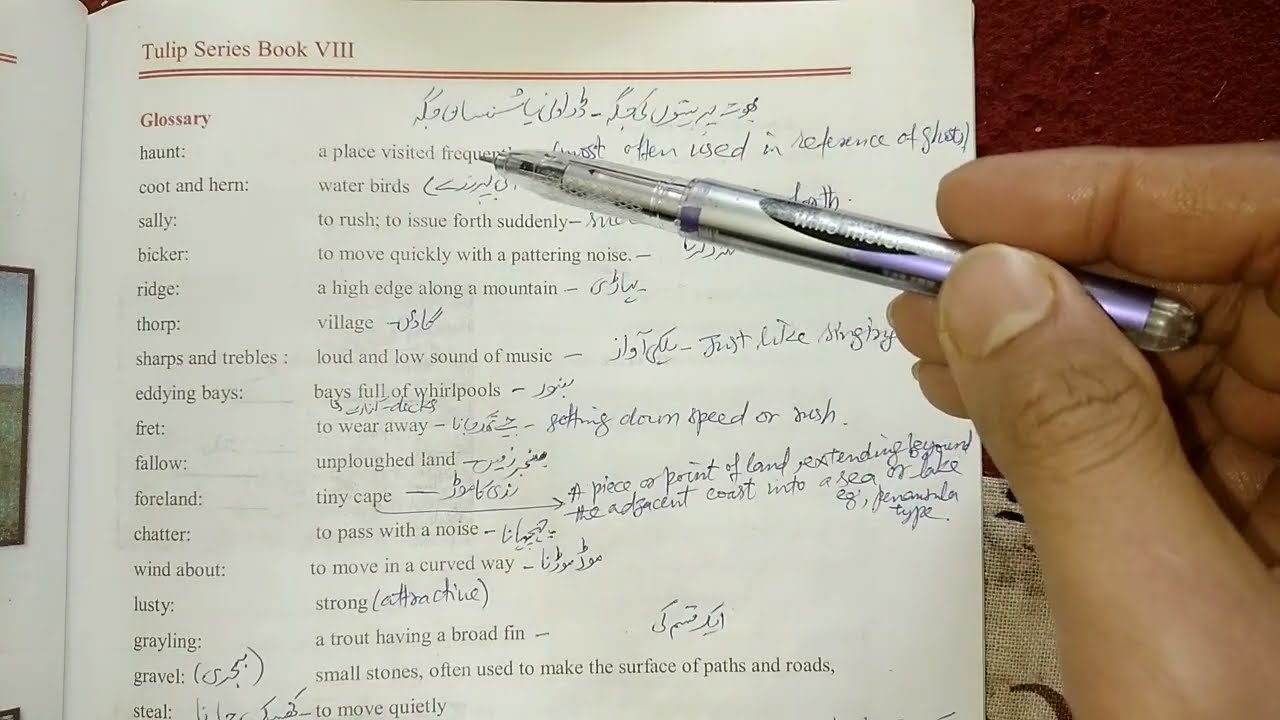 Tulip Series Book VIII
Glossary
بھوت پریتوں کی جگہ - ڈراونی یا سنسان جگہ
haunt: a place visited (most often used in reference of ghosts)
coot and hern: water birds (آبی پرندے)
sally: to rush; to issue forth suddenly– forth.
bicker: to move quickly with a pattering noise. –
ridge: a high edge along a mountain – پہاڑی -
thorp: village گاؤں-
sharps and trebles : loud and low sound of music – آواز - Just like singing
eddying bays: bays full of whirlpools –
fret: to wear away – - getting down speed or rush.
fallow: unploughed land – بنجر زمین
foreland: tiny cape — کا موڑ A piece or point of land, extending beyound
the adjacent coast into a sea or lake
eg', penansula
type.
chatter: to pass with a noise –
wind about: to move in a curved way – موڑ موڑنا
lusty: strong (attractive)
grayling: a trout having a broad fin – ایک قسم کی
gravel: (بجری) small stones, often used to make the surface of paths and roads,
steal: – to move quietly